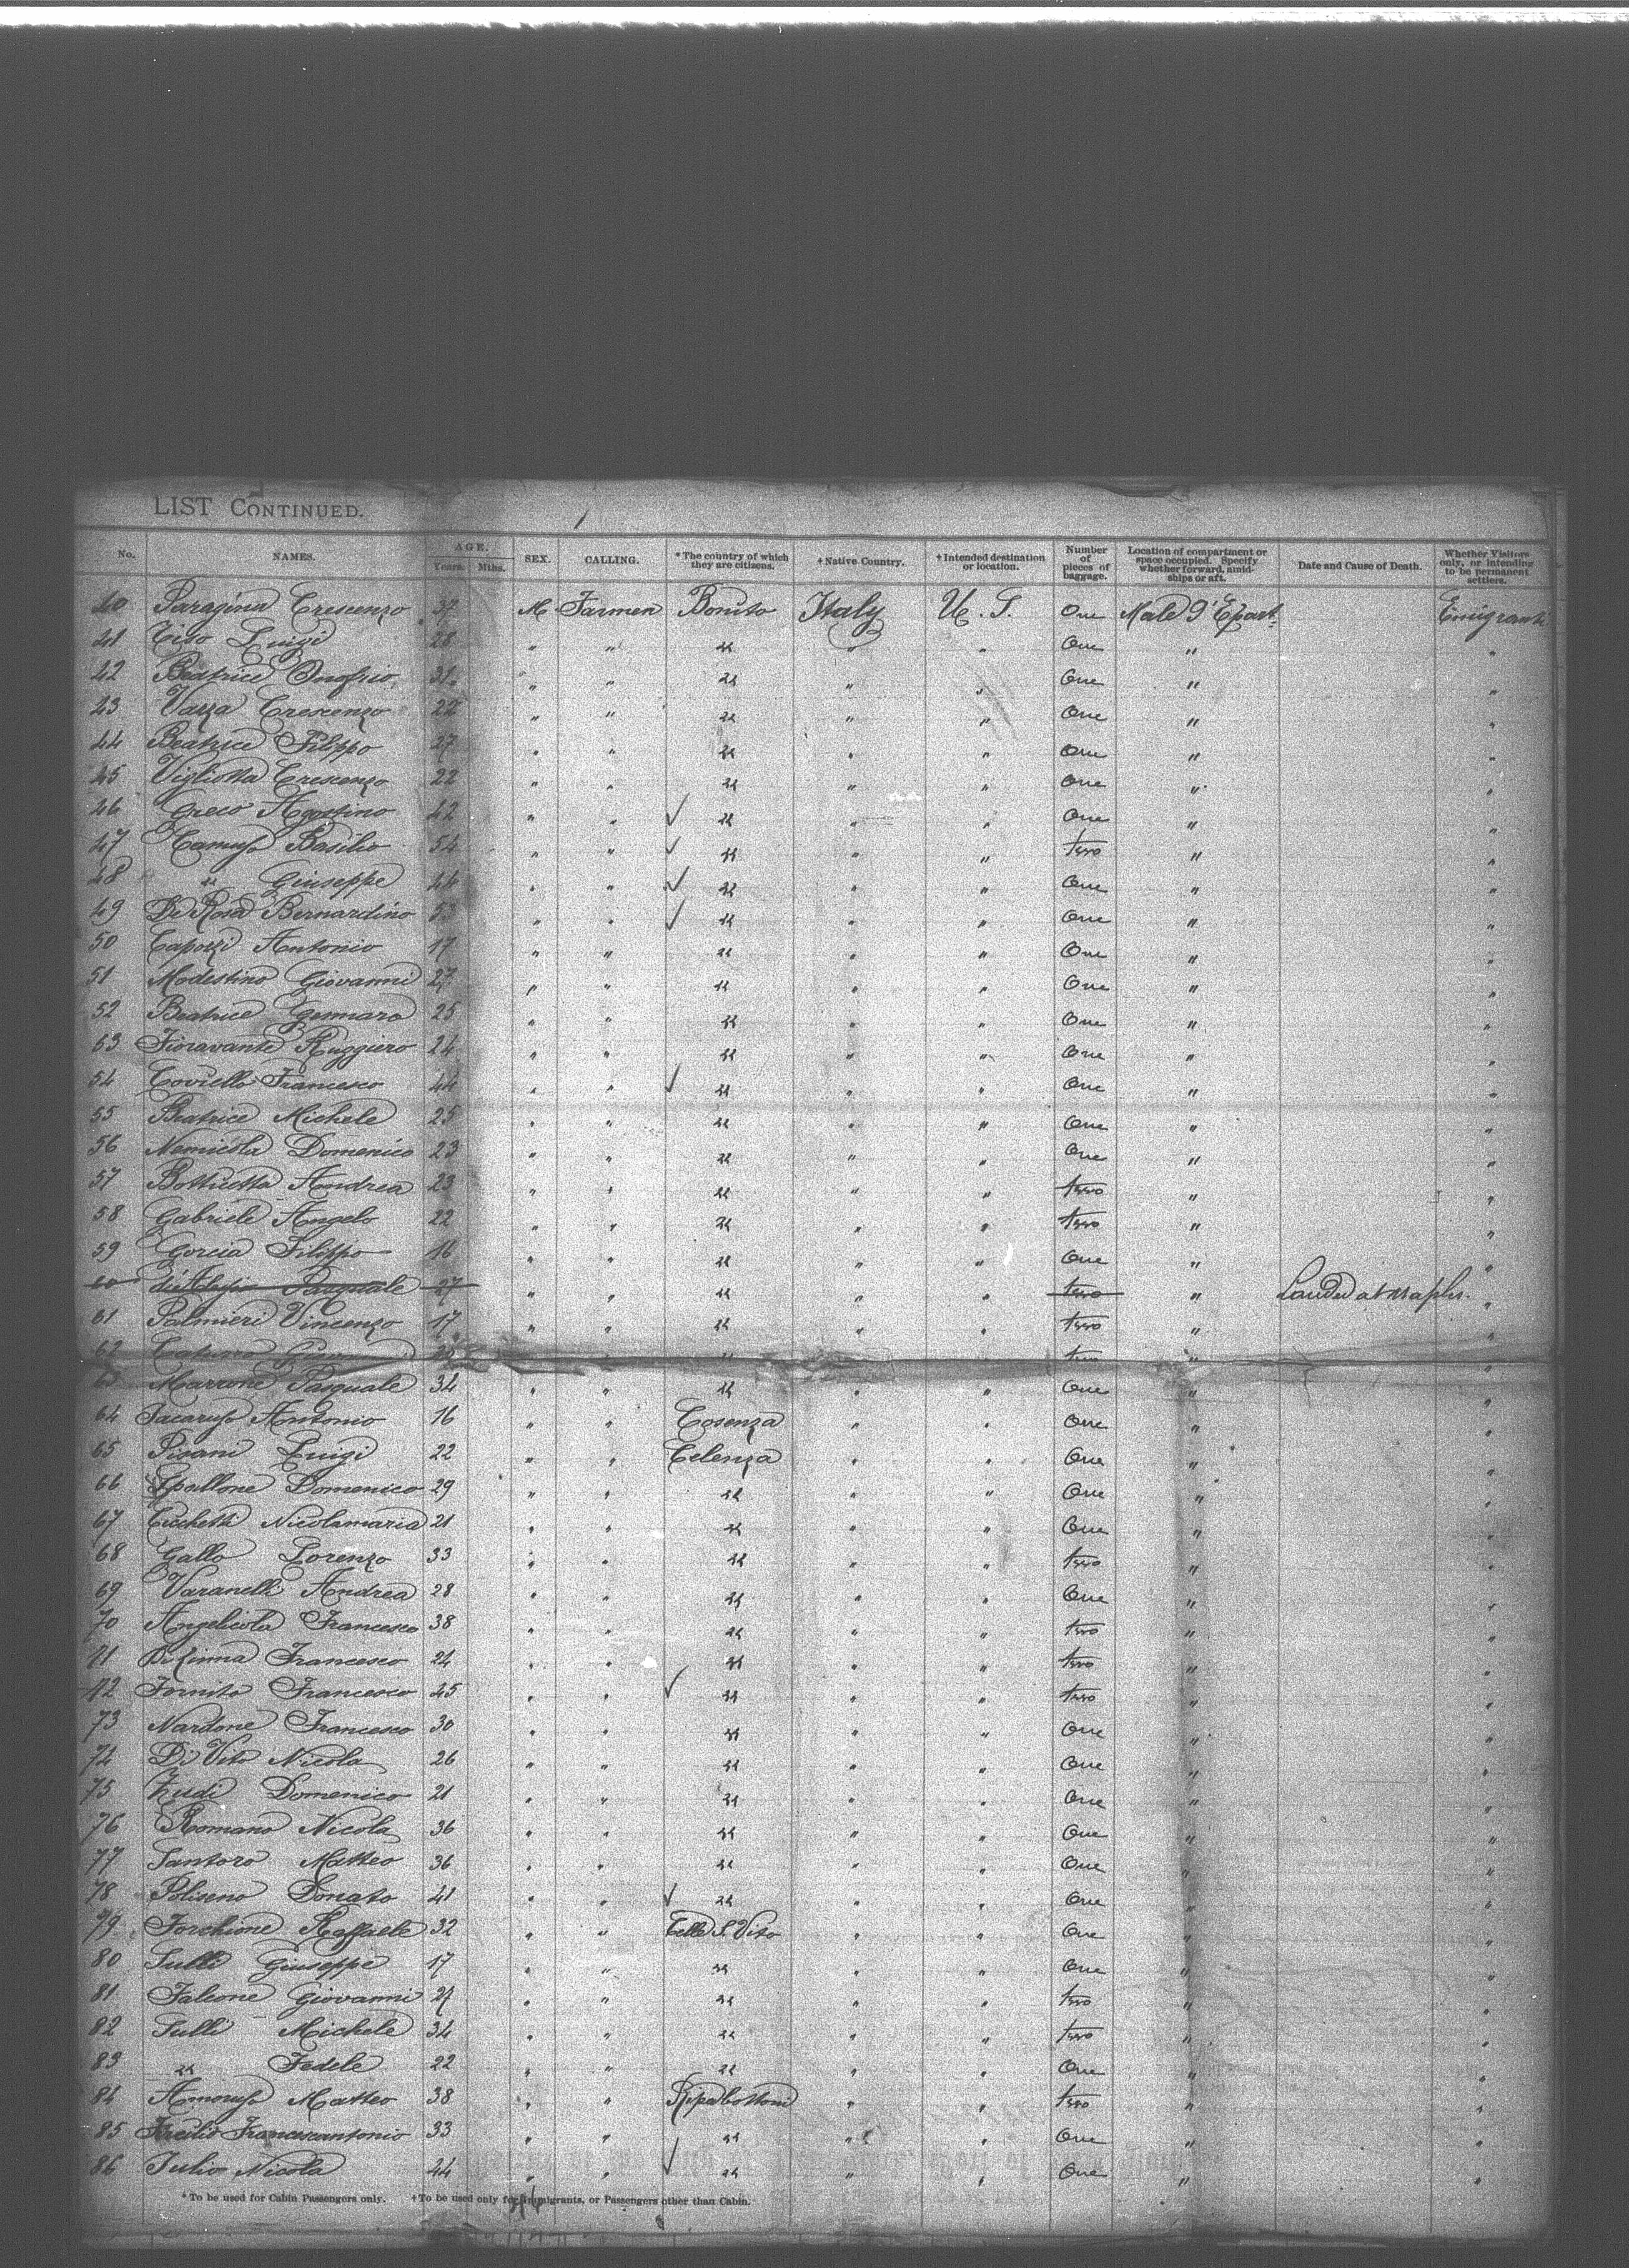 LIST CONTINUED.
No. NAMES. AGE. Years. Mths. SEX. CALLING. *The country of which they are citizens. †Native Country. †Intended destination or location. Number of pieces of baggage. Location of compartment or space occupied. Specify whether forward, amidships or aft. Date and Cause of Death. Whether Visitors only, or intending to be permanent settlers.
40 Crescenzo 37 M Farmer Bonito Italy U. S. One Male Emigrant
41 Tiso Luigi 28 " " " " " One " "
42 Beatrice Onofrio 31 " " " " " One " "
43 Vazza Crescenzo 22 " " " " " One " "
44 Beatrice Filippo 27 " " " " " One " "
45 Vigliotta Crescenzo 22 " " " " " One " "
46 Greco Agostino 42 " " ✓ " " " One " "
47 Caruso Basilio 54 " " ✓ " " " two " "
48 " Giuseppe 44 " " ✓ " " " One " "
49 De Rosa Bernardino 53 " " ✓ " " " One " "
50 Capozzi Antonio 17 " " " " " One " "
51 Modestino Giovanni 27 " " " " " One " "
52 Beatrice Gennaro 25 " " " " " One " "
53 Fioravante Ruggiero 24 " " " " " One " "
54 Coviello Francesco 44 " " ✓ " " " One " "
55 Beatrice Michele 25 " " " " " One " "
56 Nemicola Domenico 23 " " " " " One " "
57 Andrea 23 " " " " " two " "
58 Gabriele Angelo 22 " " " " " two " "
59 Filippo 16 " " " " " One " "
60 Pasquale 27 " " " " " two " Landed at Naples. "
61 Palmieri Vincenzo 17 " " " " " two " "
62 " " two " "
63 Marrone Pasquale 34 " " " " " One " "
64 Iacaruso Antonio 16 " " Cosenza " " One " "
65 Pisani Luigi 22 " " Celenza " " One " "
66 Spallone Domenico 29 " " " " " One " "
67 Cicchetti Nicolamaria 21 " " " " " One " "
68 Gallo Lorenzo 33 " " " " " two " "
69 Varanelli Andrea 28 " " " " " One " "
70 Angelicola Francesco 38 " " " " " two " "
71 Di Francesco 24 " " " " " two " "
72 Fornito Francesco 45 " " ✓ " " " two " "
73 Nardone Francesco 30 " " " " " One " "
74 Di Vito Nicola 26 " " " " " One " "
75 Domenico 21 " " " " " One " "
76 Romano Nicola 36 " " " " " One " "
77 Santoro Matteo 36 " " " " " One " "
78 Poliseno Donato 41 " " ✓ " " " One " "
79 Forchione Raffaele 32 " " Celle S. Vito " " One " "
80 Sulli Giuseppe 17 " " " " " One " "
81 Falcone Giovanni " " " " " two " "
82 Sulli Michele 34 " " " " " two " "
83 " Fedele 22 " " " " " One " "
84 Amoruso Matteo 38 " " Ripabottoni " " two " "
85 Francescantonio 33 " " " " " One " "
86 Iulio Nicola 44 " " ✓ " " " One " "
*To be used for Cabin Passengers only. †To be used only for Immigrants, or Passengers other than Cabin.